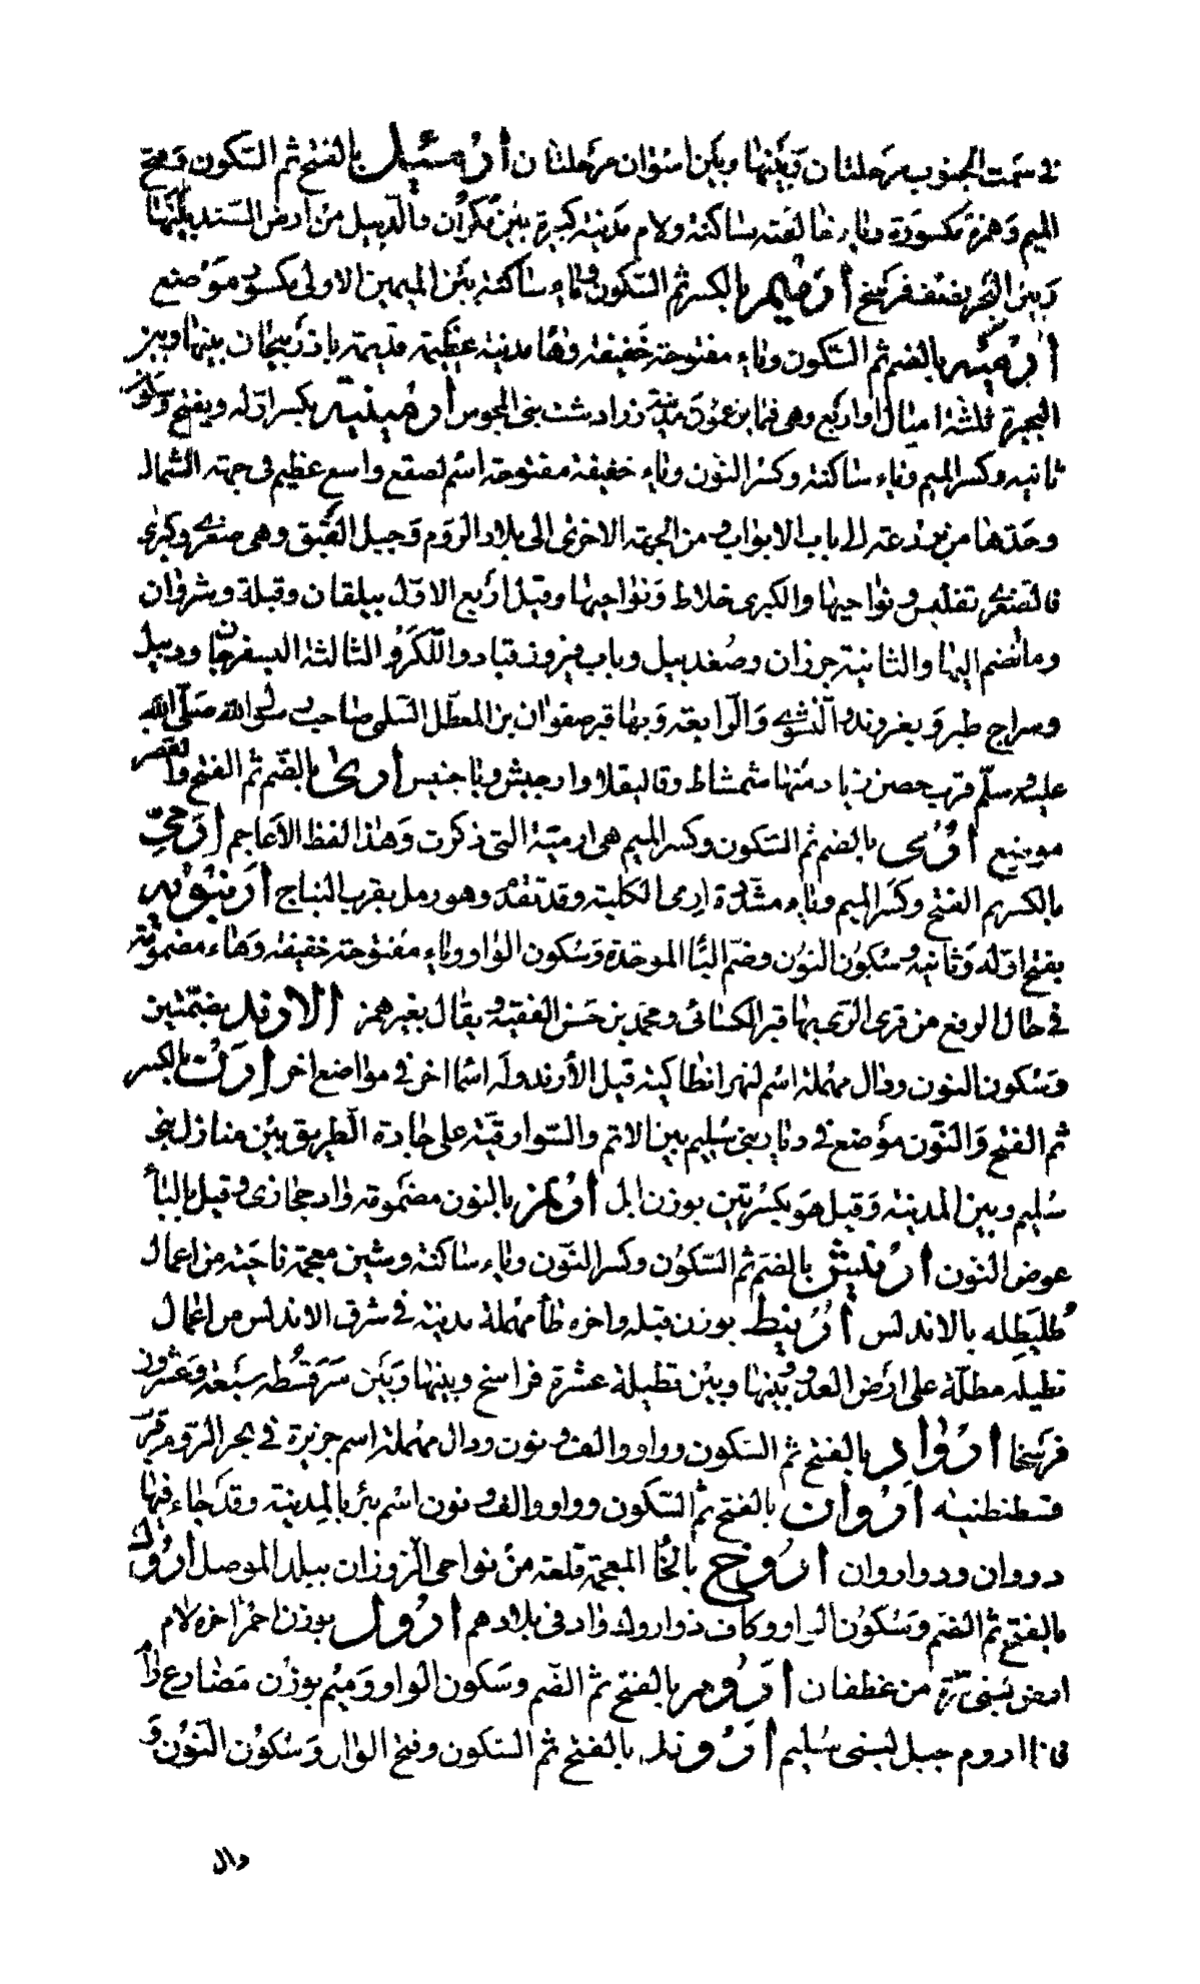 فى سمت الجنوب مرحلتان وبينها وبين اسوان مرحلتان أرمئيل بالفتح ثم السكون وفتح
الميم وهمزة مكسورة وياء خالصة ساكنة ولام مدينة كبيرة بين مكران والديبل من ارض السند بينها
وبين البحر نصف فرسخ أرميم بالكسر ثم السكون وياء ساكنة بين الميمين الاولى مكسورة موضع
أرمية بالضم ثم السكون وياء مفتوحة خفيفة وها مدينة عظيمة قديمة باذربيجان بينها وبين
البحيرة ثلثة اميال او اربع وهى فيما يزعمون مدينة زرادشت نبى المجوس أرمينية بكسر اوله ويفتح وسكون
ثانيه وكسر الميم وياء ساكنة وكسر النون وياء خفيفة مفتوحة اسم لصقع واسع عظيم فى جهة الشمال
وحدها من برذعة الى باب الابواب ومن الجهة الاخرى الى بلاد الروم وجبل القبق وهى صغرى وكبرى
فالصغرى تفليس ونواحيها والكبرى خلاط ونواحيها وقيل اربع الاول بيلقان وقبلة وشروان
وما انضم اليها والثانية جرزان وصغدبيل وباب فيروز قباد واللكز والثالثة البسفرجان ودبيل
وسراج طير وبغروند والنشوى والرابعة وبها قبر صفوان بن المعطل السلمى صاحب رسول الله صلى الله
عليه وسلم قرب حصن زياد منها شمشاط وقاليقلا وارجيش وباجنيس أرمى بالضم ثم الفتح والقصر
موضع أرمى بالضم ثم السكون وكسر الميم هى ارمية التى ذكرت وهذا لفظ الأعاجم إرمى
بالكسر ثم الفتح وكسر الميم وياء مشددة ارمى الكلبة وقد تقدم وهو رمل بقرب النباج أرنبويه
بفتح اوله وثانيه وسكون النون وضم البا الموحدة وسكون الواو وياء مفتوحة خفيفة وهاء مضمومة
فى حال الرفع من قرى الرى بها قبر الكسائى ومحمد بن حسن الفقيه ويقال بغير همز الارند بضمتين
وسكون النون ودال مهملة اسم لنهر انطاكية قبل الأرند وله اسما اخر فى مواضع اخر إرن بالكسر
ثم الفتح والنون موضع فى ديار بنى سليم بين الاتم والسوارقية على جادة الطريق بين منازل بنى
سليم وبين المدينة وقيل هو بكسرتين بوزن ابل أرنم بالنون مضمومة واد حجازى وقيل بالبا
عوض النون أرنيش بالضم ثم السكون وكسر النون وياء ساكنة وشين معجمة ناحية من اعمال
طليطله بالاندلس أرنيط بوزن قبله واخره طا مهملة مدينة فى شرق الاندلس من اعمال
تطيله مطلة على ارض العدو بينها وبين تطيلة عشرة فراسخ وبينها وبين سرقسطه سبعة وعشرون
فرسخا أرواد بالفتح ثم السكون وواو والف ودال مهملة اسم جزيرة فى بحر الروم قرب
قسطنطنيه أروان بالفتح ثم السكون وواو والف ونون اسم بئر بالمدينة وقد جاء فيها
دروان وذو اروان أروخ بالخا المعجمة قلعة من نواحى الزوزان ببلد الموصل أروك
بالفتح ثم الضم وسكون الراو وكاف ذو اروك واد فى بلادهم أرول بوزن احمر اخره لام
ارض لبنى مرة من غطفان أروم بالفتح ثم الضم وسكون الواو وميم بوزن مضارع رام
اروم جبل لبنى سليم أروند بالفتح ثم السكون وفتح الواو وسكون النون و
دال